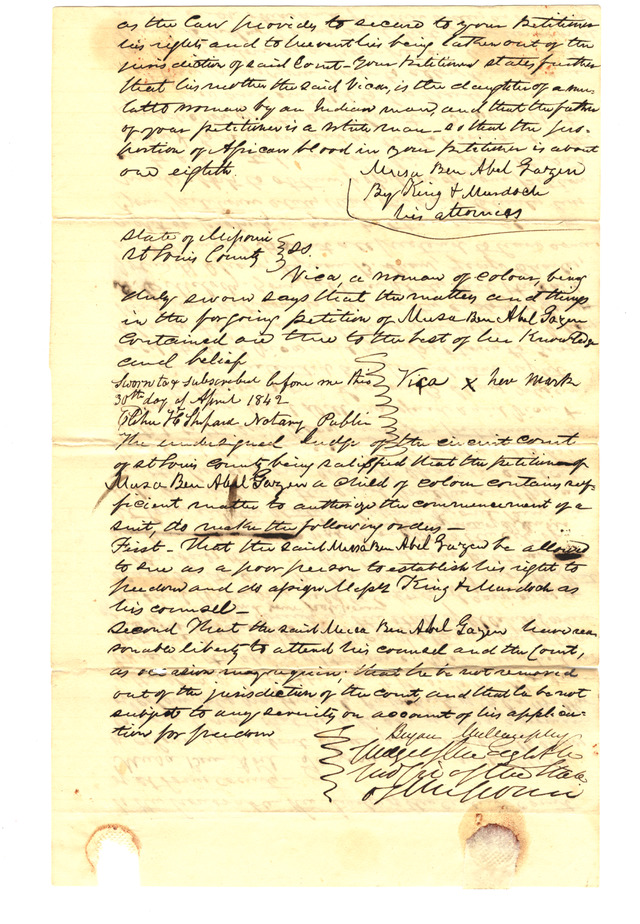 as the Law provides to secure to your Petitioner
his rights and to prevent his being taken out of the
jurisdiction of said Court - Your Petitioner states further
that his mother the said Vica, is the daughter of a mu-
latto woman by an Indian man, and that the father
of your petitioner is a white man - so that the pro-
portion of African blood in your petitioner is about
one eighth.
Musa Ben Abel Gazen
By King & Murdoch
his attornies
State of Missouri
St Louis County } SS.
Vica, a woman of colour, being
duly sworn says that the matters and things
in the forgoing petition of Musa Ben Abel Gazen
contained are true to the best of her Knowledge
and belief
Sworn to & subscribed before me this
30th day of April 1842
Vica x her mark
H Shepard Notary Public
The undersigned Judge of the circuit court
of St Louis county being satisfied that the petition of
Musa Ben Abel Gazen a child of colour contains suf-
ficient matter to authorize the commencement of a
suit, do make the following orders -
First - That the said Musa Ben Abel Gazen be allowed
to sue as a poor person to establish his right to
freedom and do assign Messrs King & Murdoch as
his counsel -
Second That the said Musa Ben Abel Gazen have rea
sonable liberty to attend his counsel and the Court,
as occasion may require, that he be not removed
out of the jurisdiction of the court and that he be not
subject to any severity on account of his applica-
tion for freedom
Bryan Mullanphy
Judge of the Eighth
of the State
of Missouri